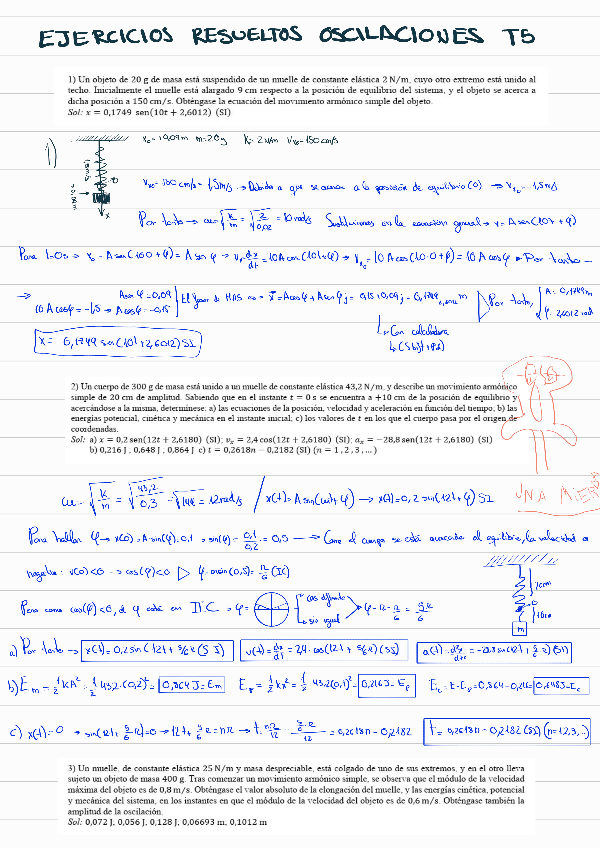 EJERCICIOS RESUELTOS OSCILACIONES T5
1) Un objeto de 20 g de masa está suspendido de un muelle de constante elástica 2 N/m, cuyo otro extremo está unido al
techo. Inicialmente el muelle está alargado 9 cm respecto a la posición de equilibrio del sistema, y el objeto se acerca a
dicha posición a 150 cm/s. Obténgase la ecuación del movimiento armónico simple del objeto.
Sol: x = 0,1749 sen(10t + 2,6012) (SI)
1)
x₀ = +0,09m m=20g K=2N/m Vx₀=150cm/s
Vx₀=150 cm/s = 1,5m/s → Debido a que se acerca a la posición de equilibrio (0) → Vx₀ = -1,5m/s
Por tanto → ω=√(k/m) = √(2/0,02) = 10 rad/s Sustituimos en la ecuación general → x = A sen(10t + φ)
Para t=0s → x₀ = A sen(10·0+φ) = A sen φ → Vx = dx/dt = 10A cos(10t+φ) → Vx₀ = 10A cos(10·0+φ) = 10A cos φ → Por tanto
→ A sen φ = 0,09
10A cos φ = -1,5 → A cos φ = -0,15
El fasor de MAS es → = A cos φ + A sen φ j = -0,15+0,09j = 0,1749 m
Por tanto, A = 0,1749m
φ = 2,6012 rad
Con calculadora
x = 0,1749 sen(10t+2,6012) SI
2) Un cuerpo de 300 g de masa está unido a un muelle de constante elástica 43,2 N/m, y describe un movimiento armónico
simple de 20 cm de amplitud. Sabiendo que en el instante t = 0 s se encuentra a +10 cm de la posición de equilibrio y
acercándose a la misma, determínese: a) las ecuaciones de la posición, velocidad y aceleración en función del tiempo; b) las
energías potencial, cinética y mecánica en el instante inicial; c) los valores de t en los que el cuerpo pasa por el origen de
coordenadas.
Sol: a) x = 0,2 sen(12t + 2,6180) (SI); vₓ = 2,4 cos(12t + 2,6180) (SI); aₓ = −28,8 sen(12t + 2,6180) (SI)
b) 0,216 J ; 0,648 J ; 0,864 J c) t = 0,2618n − 0,2182 (SI) (n = 1, 2, 3, ... )
UNA
ω = √(K/m) = √(43,2/0,3) = √144 = 12 rad/s / x(t) = A sen(ωt+φ) → x(t) = 0,2 sen(12t+φ) SI
Para hallar φ → x(0) = A·sen(φ) = 0,1 → sen(φ) = 0,1/0,2 = 0,5 → Como el cuerpo se está acercando al equilibrio, la velocidad es
negativa: v(0)<0 → cos(φ)<0 ▷ φ = arcsen(0,5) = π/6 (IC)
7cm
0
+10cm
m
Pero como cos(φ)<0, φ está en IIC → φ = cos diferente
sin igual
φ = π - π/6 = 5π/6
a) Por tanto → x(t) = 0,2 sen(12t + 5/6 π) (SI) v(t) = dx/dt = 2,4·cos(12t + 5/6 π) (SI) a(t) = d²x/dt² = -28,8 sen(12t + 5/6 π) (SI)
b) Em = 1/2 kA² = 1/2 43,2·(0,2)² = 0,864J = Em Ep = 1/2 kx² = 1/2 43,2(0,1)² = 0,216J = Ep Ec = E-Ep = 0,864-0,216 = 0,648J = Ec
c) x(t) = 0 → sen(12t + 5/6 π) = 0 → 12t + 5/6 π = nπ → t = nπ/12 - 5/6 π/12 = 0,2618n - 0,2182 t = 0,2618n - 0,2182 (SI) (n=1,2,3,..)
3) Un muelle, de constante elástica 25 N/m y masa despreciable, está colgado de uno de sus extremos, y en el otro lleva
sujeto un objeto de masa 400 g. Tras comenzar un movimiento armónico simple, se observa que el módulo de la velocidad
máxima del objeto es de 0,8 m/s. Obténgase el valor absoluto de la elongación del muelle, y las energías cinética, potencial
y mecánica del sistema, en los instantes en que el módulo de la velocidad del objeto es de 0,6 m/s. Obténgase también la
amplitud de la oscilación.
Sol: 0,072 J; 0,056 J, 0,128 J; 0,06693 m; 0,1012 m